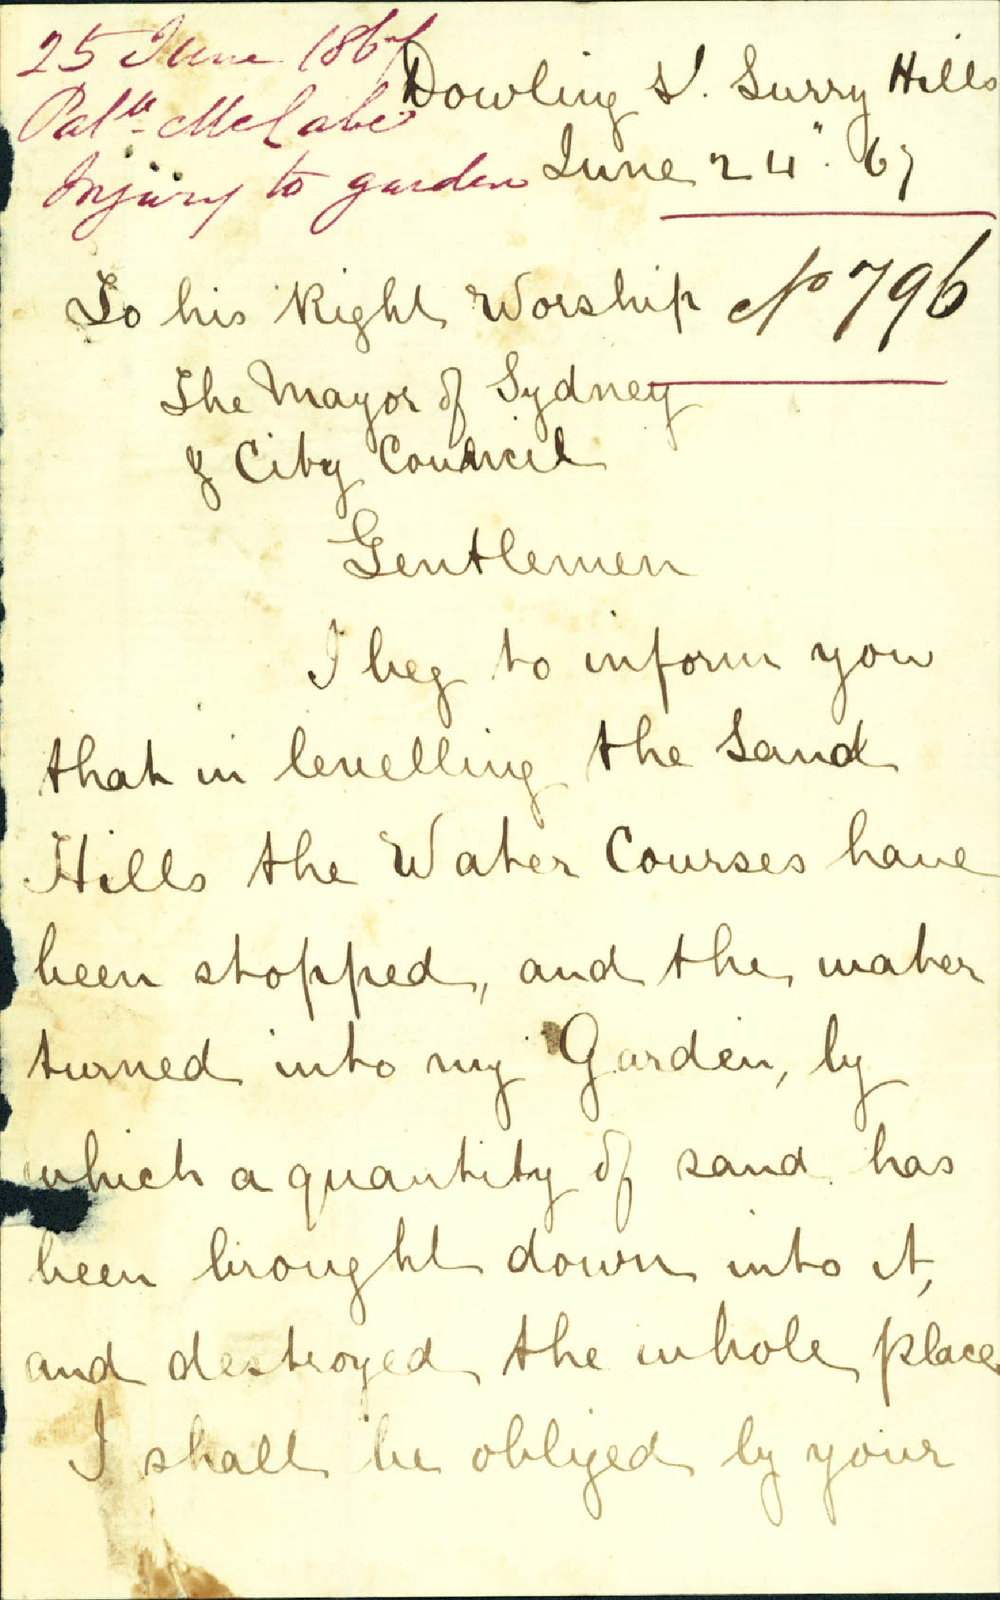 25 June 1867
Patk McCabe
Injury to garden
Dowling St. Surry Hills
June 24" 67
No 796
To his Right Worship
The Mayor of Sydney
& City Council
Gentlemen
I beg to inform you
that in levelling the Sand
Hills the Water Courses have
been stopped, and the water
turned into my Garden, by
which a quantity of sand has
been brought down into it,
and destroyed the whole place
I shall be obliged by your